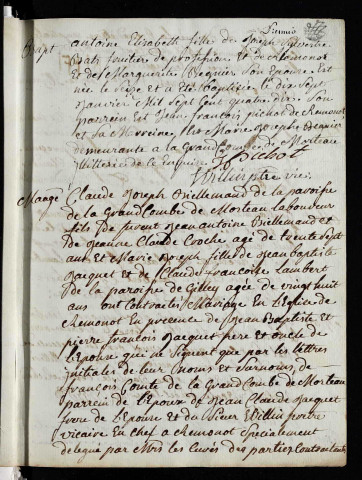 Bapt antoine Elizabeth fille de Joseph Sylvestre
fruitier de profession et de Remonot
et de Marguerite Regnier Son Epouse Est
née le Seize et a Eté baptisée le dix Sept
Janvier Mil Sept Cent quatre dix Son
parrein Est Jean françois pichot de Remonot
et Sa Marreine Marie Joseph Regnier
demeurante a la GrandCombe de Morteau
illiterée de Ce Enquise JF Pichot
Willin ptre vic:
Mariage Claude Joseph Billemand de la paroisse
de la GrandCombe de Morteau laboureur
fils de feu Jean antoine Billemand et
de Jeanne Claude Croche agé de trente Sept
ans Et Marie Joseph fille de Jean baptiste
Jacquet et de Claude francoise Lambert
de la paroisse de Gilley agée de vingt huit
ans ont Contractés Mariage En L'Eglise de
Remonot En presence de Jean Baptiste et
pierre francois Jacquet pere et oncle de
L'Epouse qui ne Signent que par les lettres
initiales de leur Noms et Surnoms, de
françois Comte de la GrandCombe de Morteau
parrein de L'Epoux de Jean Claude Jacquet
frere de L'Epouse et du Sieur Willin pretre
vicaire En Chef a Remonot Specialement
delegué par Mrs les Curés des parties Contractantes